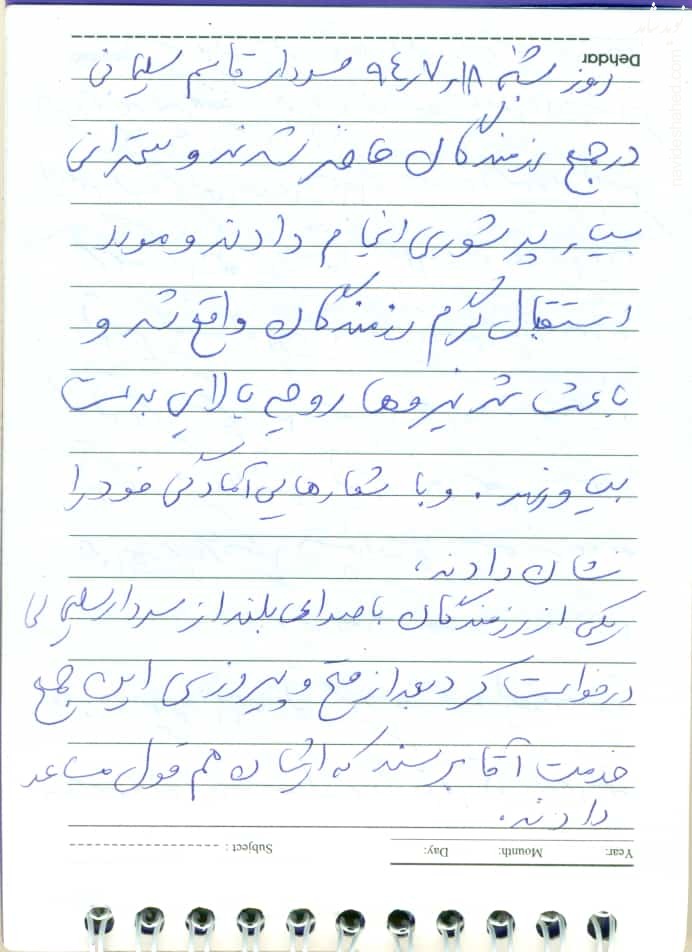 Dehdar
روز شنبه ۹۴٫۷٫۱۸ سردار قاسم سلیمانی
در جمع رزمندگان حاضر شدند و سخنرانی
بسیار پر شوری انجام دادند و مورد
استقبال گرم رزمندگان واقع شد و
باعث شد نیروها روحیه بالایی بدست
بیاورند. و با شعارهایی آمادگی خود را
نشان دادند،
یکی از رزمندگان با صدای بلند از سردار سلیمانی
درخواست کرد بعد از فتح و پیروزی این جمع
خدمت آقا برسند که ایشان هم قول مساعد
دادند.
Subject :
Day:
Mounth:
Year:
navideshahed.com